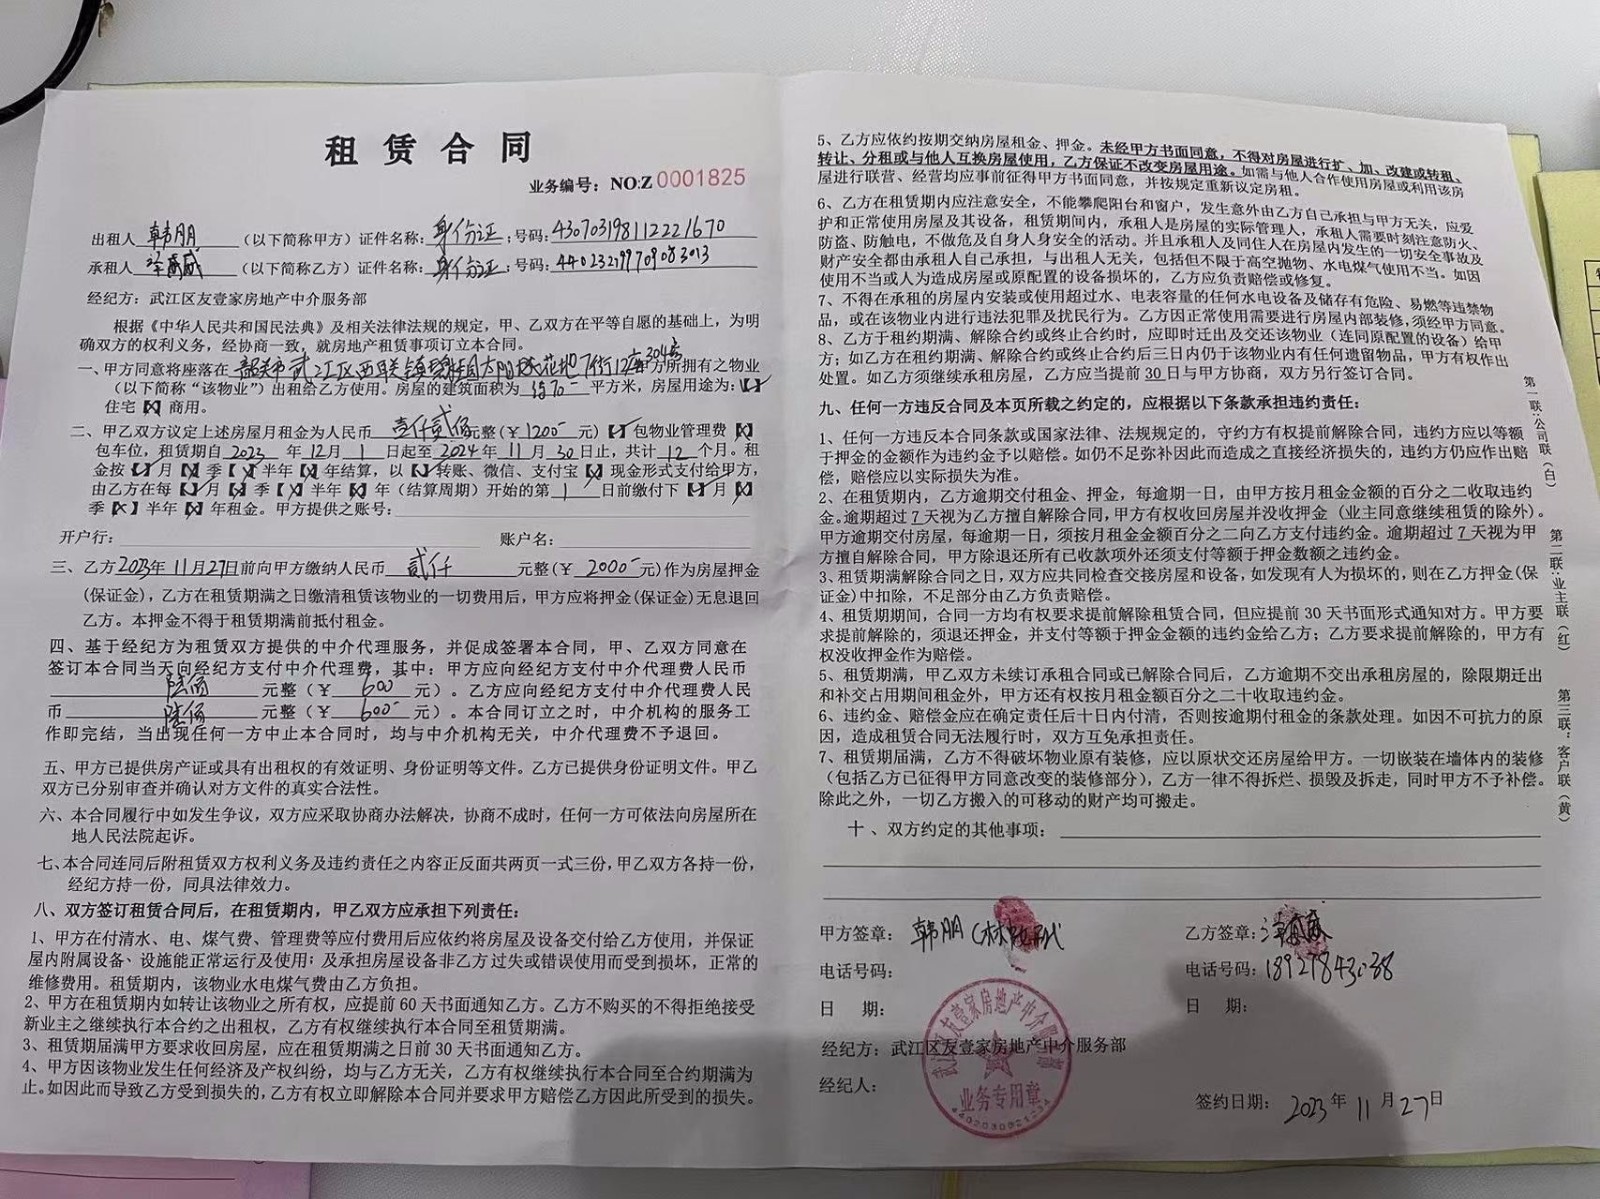 租赁合同
业务编号：NO:Z 0001825
出租人 韩朋 （以下简称甲方）证件名称：身份证；号码：430703198112221670
承租人 （以下简称乙方）证件名称：身份证；号码：440232199709083013
经纪方：武江区友壹家房地产中介服务部
根据《中华人民共和国民法典》及相关法律法规的规定，甲、乙双方在平等自愿的基础上，为明
确双方的权利义务，经协商一致，就房地产租赁事项订立本合同。
一、甲方同意将座落在 韶关市武江区西联镇 太阳城花地 街12座304房 甲方所拥有之物业
（以下简称“该物业”）出租给乙方使用。房屋的建筑面积为 70 平方米，房屋用途为：【✓】
住宅【X】商用。
二、甲乙双方议定上述房屋月租金为人民币 壹仟贰佰 元整（¥ 1200 元）【✓】包物业管理费【X】
包车位，租赁期自 2023 年 12 月 1 日起至 2024 年 11 月 30 日止，共计 12 个月。租
金按【✓】月【X】季【X】半年【X】年结算，以【✓】转账、微信、支付宝【X】现金形式支付给甲方，
由乙方在每【✓】月【X】季【X】半年【X】年（结算周期）开始的第 1 日前缴付下【✓】月【X】
季【X】半年【X】年租金。甲方提供之账号：
开户行： 账户名：
三、乙方 2023年11月27日前向甲方缴纳人民币 贰仟 元整（¥ 2000 元）作为房屋押金
（保证金），乙方在租赁期满之日缴清租赁该物业的一切费用后，甲方应将押金（保证金）无息退回
乙方。本押金不得于租赁期满前抵付租金。
四、基于经纪方为租赁双方提供的中介代理服务，并促成签署本合同，甲、乙双方同意在
签订本合同当天向经纪方支付中介代理费，其中：甲方应向经纪方支付中介代理费人民币
陆佰 元整（¥ 600 元）。乙方应向经纪方支付中介代理费人民
币 陆佰 元整（¥ 600 元）。本合同订立之时，中介机构的服务工
作即完结，当出现任何一方中止本合同时，均与中介机构无关，中介代理费不予退回。
五、甲方已提供房产证或具有出租权的有效证明、身份证明等文件。乙方已提供身份证明文件。甲乙
双方已分别审查并确认对方文件的真实合法性。
六、本合同履行中如发生争议，双方应采取协商办法解决，协商不成时，任何一方可依法向房屋所在
地人民法院起诉。
七、本合同连同后附租赁双方权利义务及违约责任之内容正反面共两页一式三份，甲乙双方各持一份，
经纪方持一份，同具法律效力。
八、双方签订租赁合同后，在租赁期内，甲乙双方应承担下列责任：
1、甲方在付清水、电、煤气费、管理费等应付费用后应依约将房屋及设备交付给乙方使用，并保证
屋内附属设备、设施能正常运行及使用；及承担房屋设备非乙方过失或错误使用而受到损坏，正常的
维修费用。租赁期内，该物业水电煤气费由乙方负担。
2、甲方在租赁期内如转让该物业之所有权，应提前60天书面通知乙方。乙方不购买的不得拒绝接受
新业主之继续执行本合约之出租权，乙方有权继续执行本合同至租赁期满。
3、租赁期届满甲方要求收回房屋，应在租赁期满之日前30天书面通知乙方。
4、甲方因该物业发生任何经济及产权纠纷，均与乙方无关，乙方有权继续执行本合同至合约期满为
止。如因此而导致乙方受到损失的，乙方有权立即解除本合同并要求甲方赔偿乙方因此所受到的损失。
5、乙方应依约按期交纳房屋租金、押金。未经甲方书面同意，不得对房屋进行扩、加、改建或转租、
转让、分租或与他人互换房屋使用，乙方保证不改变房屋用途。如需与他人合作使用房屋或利用该房
屋进行联营、经营均应事前征得甲方书面同意，并按规定重新议定房租。
6、乙方在租赁期内应注意安全，不能攀爬阳台和窗户，发生意外由乙方自己承担与甲方无关，应爱
护和正常使用房屋及其设备，租赁期间内，承租人是房屋的实际管理人，承租人需要时刻注意防火、
防盗、防触电，不做危及自身人身安全的活动。并且承租人及同住人在房屋内发生的一切安全事故及
财产安全都由承租人自己承担，与出租人无关，包括但不限于高空抛物、水电煤气使用不当。如因
使用不当或人为造成房屋或原配置的设备损坏的，乙方应负责赔偿或修复。
7、不得在承租的房屋内安装或使用超过水、电表容量的任何水电设备及储存有危险、易燃等违禁物
品，或在该物业内进行违法犯罪及扰民行为。乙方因正常使用需要进行房屋内部装修，须经甲方同意。
8、乙方于租约期满、解除合约或终止合约时，应即时迁出及交还该物业（连同原配置的设备）给甲
方；如乙方在租约期满、解除合约或终止合约后三日内仍于该物业内有任何遗留物品，甲方有权作出
处置。如乙方须继续承租房屋，乙方应当提前30日与甲方协商，双方另行签订合同。
九、任何一方违反合同及本页所载之约定的，应根据以下条款承担违约责任：
1、任何一方违反本合同条款或国家法律、法规规定的，守约方有权提前解除合同，违约方应以等额
于押金的金额作为违约金予以赔偿。如仍不足弥补因此而造成之直接经济损失的，违约方仍应作出赔
偿，赔偿应以实际损失为准。
2、在租赁期内，乙方逾期交付租金、押金，每逾期一日，由甲方按月租金金额的百分之二收取违约
金。逾期超过7天视为乙方擅自解除合同，甲方有权收回房屋并没收押金（业主同意继续租赁的除外）。
甲方逾期交付房屋，每逾期一日，须按月租金金额百分之二向乙方支付违约金。逾期超过7天视为甲
方擅自解除合同，甲方除退还所有已收款项外还须支付等额于押金数额之违约金。
3、租赁期满解除合同之日，双方应共同检查交接房屋和设备，如发现有人为损坏的，则在乙方押金（保
证金）中扣除，不足部分由乙方负责赔偿。
4、租赁期期间，合同一方均有权要求提前解除租赁合同，但应提前30天书面形式通知对方。甲方要
求提前解除的，须退还押金，并支付等额于押金金额的违约金给乙方；乙方要求提前解除的，甲方有
权没收押金作为赔偿。
5、租赁期满，甲乙双方未续订承租合同或已解除合同后，乙方逾期不交出承租房屋的，除限期迁出
和补交占用期间租金外，甲方还有权按月租金额百分之二十收取违约金。
6、违约金、赔偿金应在确定责任后十日内付清，否则按逾期付租金的条款处理。如因不可抗力的原
因，造成租赁合同无法履行时，双方互免承担责任。
7、租赁期届满，乙方不得破坏物业原有装修，应以原状交还房屋给甲方。一切嵌装在墙体内的装修
（包括乙方已征得甲方同意改变的装修部分），乙方一律不得拆烂、损毁及拆走，同时甲方不予补偿。
除此之外，一切乙方搬入的可移动的财产均可搬走。
十、双方约定的其他事项：
甲方签章：韩朋 乙方签章：
电话号码： 电话号码：18927843038
日 期： 日 期：
经纪方：武江区友壹家房地产中介服务部
经纪人：
签约日期：2023 年 11 月 27 日
武江区友壹家房地产中介服务部
业务专用章
第一联：公司联（白）
第二联：业主联（红）
第三联：客户联（黄）